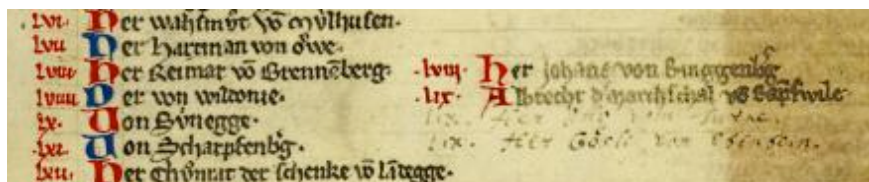 lvi. Her wahsmůt vō mv̂lhusen.
lvii Der hartman von ŏwe.
lviii Her Reimar vō Brennēberg.
lviiii Der von wildonie.
lx. Uon Sv̂negge.
lxi. Uon Scharpfenb͛g.
lxii. Her Chůnrat der schenke vō lātegge.
.lviij. Her johans von Ringgenb͛g
.lix. Albrecht d͛ marschal vō Raprswile
lix. Her
lx. Her Gösli von Ehenhein.